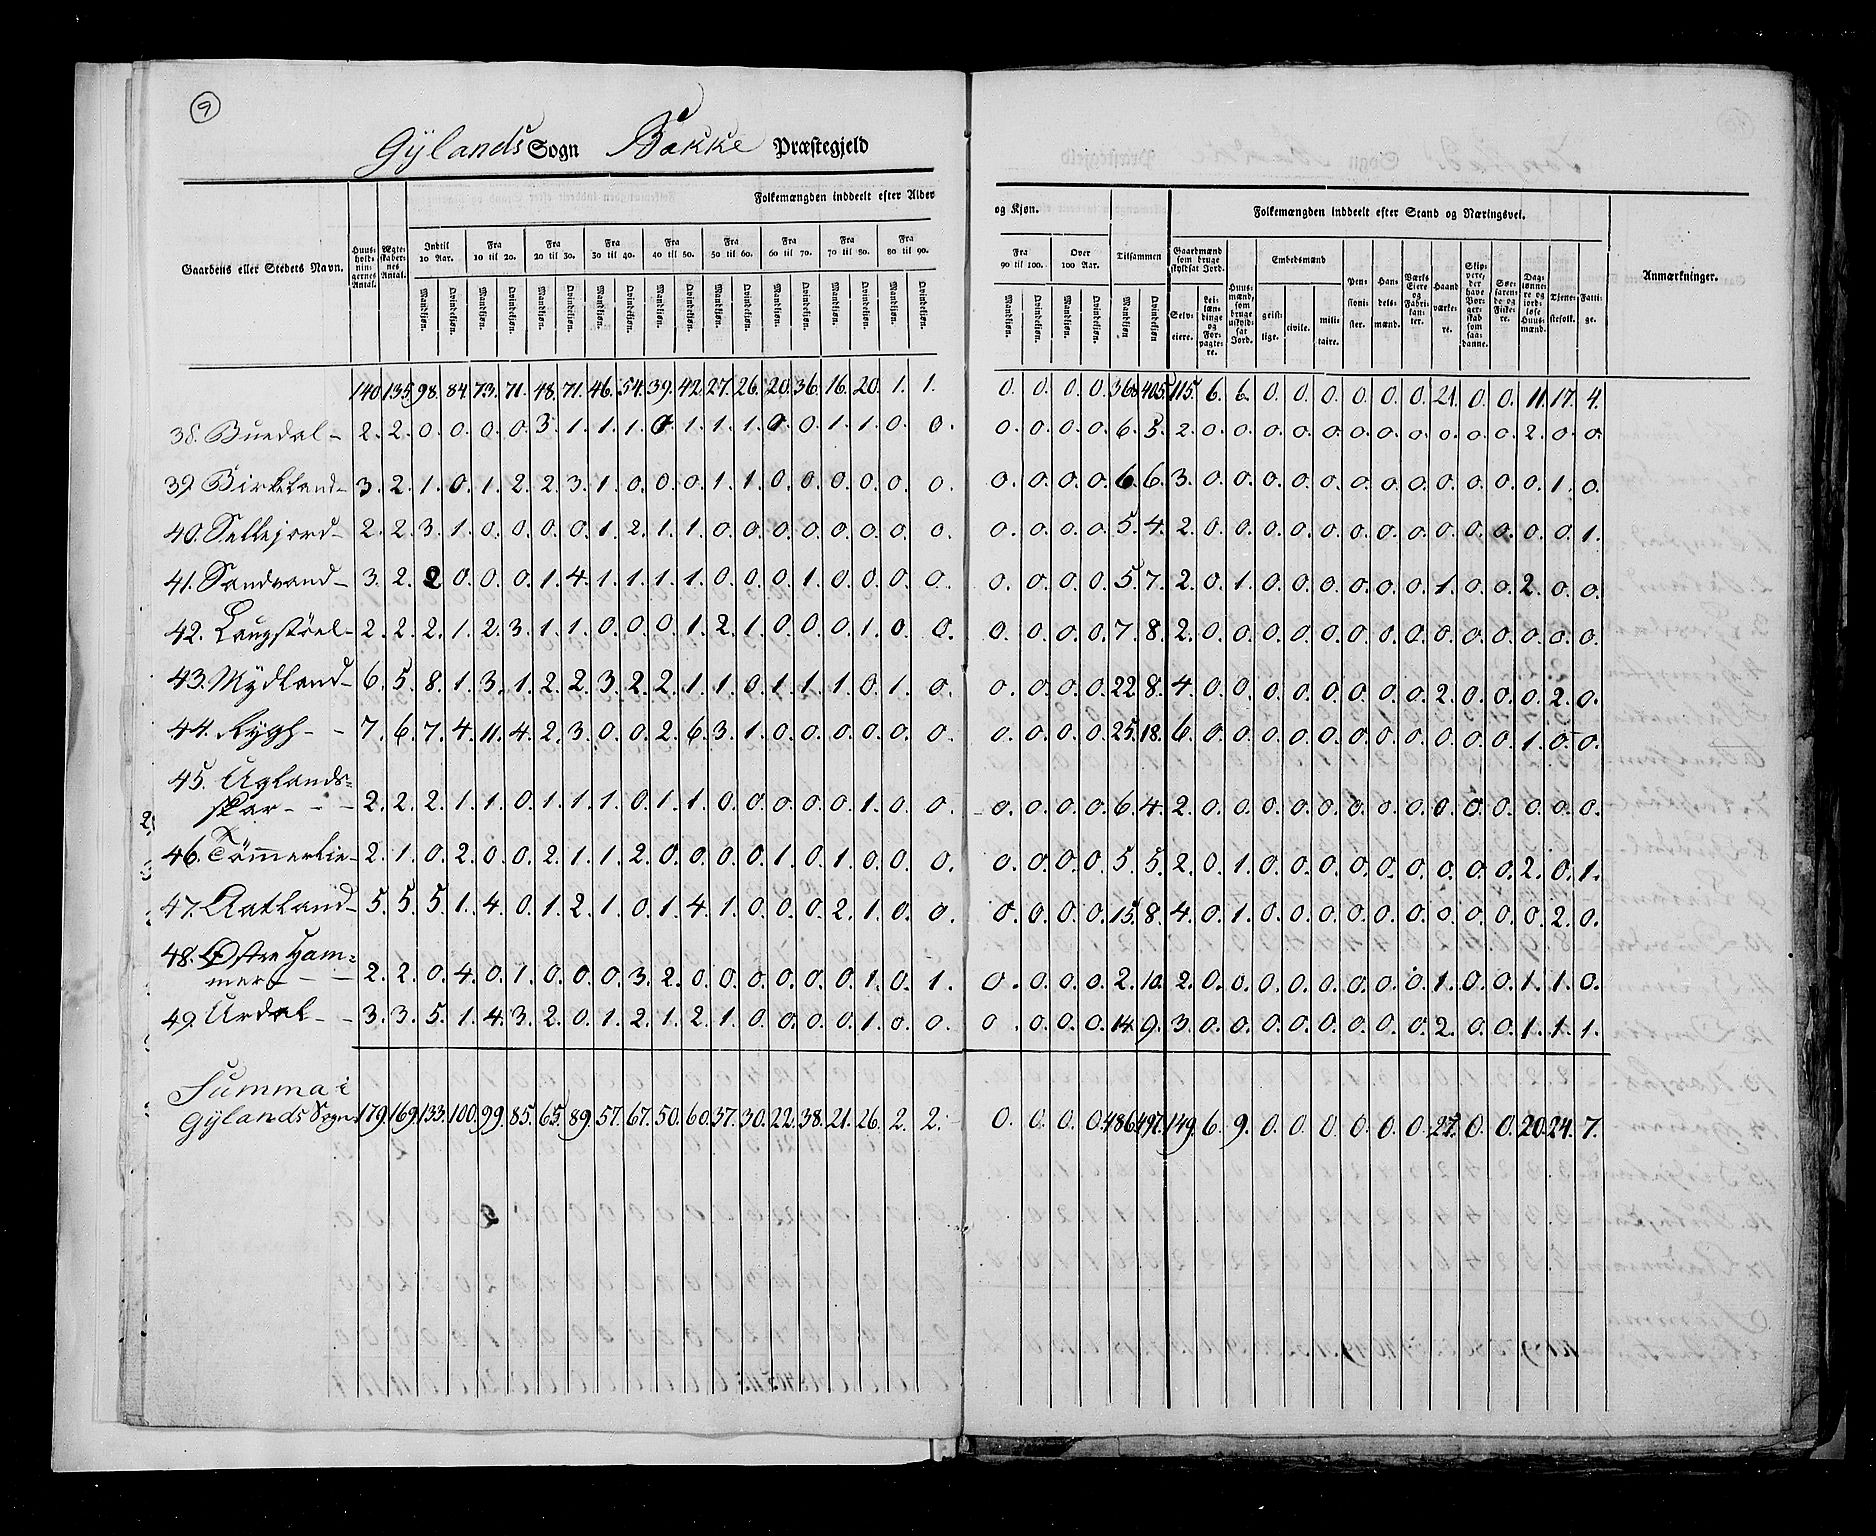 9
Gÿlands Sogn Bakke Præstegjeld
Gaardens eller Stedets Navn.
Huusholdningernes Antal.
Ægteskabernes Antal.
Folkemængden inddeelt efter Alder og Kjøn.
Indtil 10 Aar. Fra 10 til 20. Fra 20 til 30. Fra 30 til 40. Fra 40 til 50. Fra 50 til 60. Fra 60 til 70. Fra 70 til 80. Fra 80 til 90. Fra 90 til 100. Over 100 Aar. Tilsammen
Mandkjøn. Qvindekjøn. Mandkjøn. Qvindekjøn. Mandkjøn. Qvindekjøn. Mandkjøn. Qvindekjøn. Mandkjøn. Qvindekjøn. Mandkjøn. Qvindekjøn. Mandkjøn. Qvindekjøn. Mandkjøn. Qvindekjøn. Mandkjøn. Qvindekjøn. Mandkjøn. Qvindekjøn. Mandkjøn. Qvindekjøn. Mandkjøn Qvindekjøn.
Folkemængden inddeelt efter Stand og Næringsvei.
Gaardmænd som bruge skyldsat Jord.
Selveiere.
Leilændinge og Forpagtere.
Huusmænd, som bruge uskyldsat Jord.
Embedsmænd
geistlige. civile. militaire.
Pensionister.
Handelsmænd.
Værks Eiere og Fabrikanter.
Haandværkere.
Skippere, der have Borgerskab som saadanne.
Søefarende og Fiskere.
Daglønnere og jordløse Huusmænd.
Tjenestefolk.
Fattige.
Anmærkninger.
140 135. 98. 84. 73. 71. 48. 71. 46. 54. 39. 42. 27. 26. 20. 36. 16. 20. 1. 1. 0. 0. 0. 0. 368 405. 115. 6. 6. 0. 0. 0. 0. 0. 0. 21. 0. 0. 11. 17. 4.
38. Buedal - 2. 2. 0. 0. 0. 0. 3. 1. 1. 1. 0. 1. 1. 1. 0. 0. 1. 1. 0. 0. 0. 0. 0. 0. 6. 5. 2. 0. 0. 0. 0. 0. 0. 0. 0. 0. 0. 0. 2. 0. 0.
39. Birkeland - 3. 2. 1. 0. 1. 2. 2. 3. 1. 0. 0. 0. 1. 1. 0. 0. 0. 0. 0. 0. 0. 0. 0. 0. 6. 6. 3. 0. 0. 0. 0. 0. 0. 0. 0. 0. 0. 0. 0. 1. 0.
40. Sellejord - 2. 2. 3. 1. 0. 0. 0. 0. 1. 2. 1. 1. 0. 0. 0. 0. 0. 0. 0. 0. 0. 0. 0. 0. 5. 4. 2. 0. 0. 0. 0. 0. 0. 0. 0. 0. 0. 0. 0. 0. 1.
41. Sandvand - 3. 2. 2 0. 0. 0. 1. 4. 1. 1. 1. 1. 0. 0. 0. 1. 0. 0. 0. 0. 0. 0. 0. 0. 5. 7. 2. 0. 1. 0. 0. 0. 0. 0. 0. 1. 0. 0. 2. 0. 0.
42. Laugstøel - 2. 2. 2. 1. 2. 3. 1. 1. 0. 0. 0. 1. 2. 1. 0. 0. 0. 1. 0. 0. 0. 0. 0. 0. 7. 8. 2. 0. 0. 0. 0. 0. 0. 0. 0. 0. 0. 0. 0. 0. 0.
43. Mÿdland - 6. 5. 8. 1. 3. 1. 2. 2. 3. 2. 2. 1. 1. 0. 1. 1. 1. 0. 1. 0. 0. 0. 0. 0. 22. 8. 4. 0. 0. 0. 0. 0. 0. 0. 0. 2. 0. 0. 0. 2. 0.
44. Rygh - - 7. 6. 7. 4. 11. 4. 2. 3. 0. 0. 2. 6. 3. 1. 0. 0. 0. 0. 0. 0. 0. 0. 0. 0. 25. 18. 6. 0. 0. 0. 0. 0. 0. 0. 0. 0. 0. 0. 1. 0. 0.
45. Uglands=
skar - - - 2. 2. 2. 1. 1. 0. 1. 1. 1. 0. 1. 1. 0. 0. 0. 0. 0. 1. 0. 0. 0. 0. 0. 0. 6. 4. 2. 0. 0. 0. 0. 0. 0. 0. 0. 0. 0. 0. 0. 0. 0.
46. Tömerlie - 2. 1. 0. 2. 0. 0. 2. 1. 1. 2. 0. 0. 0. 0. 1. 0. 1. 0. 0. 0. 0. 0. 0. 0. 5. 5. 2. 0. 1. 0. 0. 0. 0. 0. 0. 0. 0. 0. 2. 0. 1.
47. Aatland - 5. 5. 5. 1. 4. 0. 1. 2. 1. 0. 1. 4. 1. 0. 0. 0. 2. 1. 0. 0. 0. 0. 0. 0. 15. 8. 4. 0. 1. 0. 0. 0. 0. 0. 0. 0. 0. 0. 0. 2. 0.
48. Østre Ham=
mer - - - 2. 2. 0. 4. 0. 1. 0. 0. 0. 3. 2. 0. 0. 0. 0. 0. 0. 1. 0. 1. 0. 0. 0. 0. 2. 10. 2. 0. 0. 0. 0. 0. 0. 0. 0. 1. 0. 0. 1. 1. 0.
49. Urdal - - 3. 3. 5. 1. 4. 3. 2. 0. 1. 2. 1. 2. 1. 0. 0. 0. 0. 1. 0. 0. 0 0. 0. 0. 14. 9. 3. 0. 0. 0. 0. 0. 0. 0. 0. 2. 0. 0. 1. 1. 1.
Summa i
Gÿlands Sogn 179. 169. 133. 100. 99. 85. 65. 89. 57. 67. 50. 60. 37. 30. 22. 38. 21. 26. 2. 2. 0. 0. 0. 0. 486. 497. 149. 6. 9. 0. 0. 0. 0. 0. 0. 27. 0. 0. 20. 24. 7.